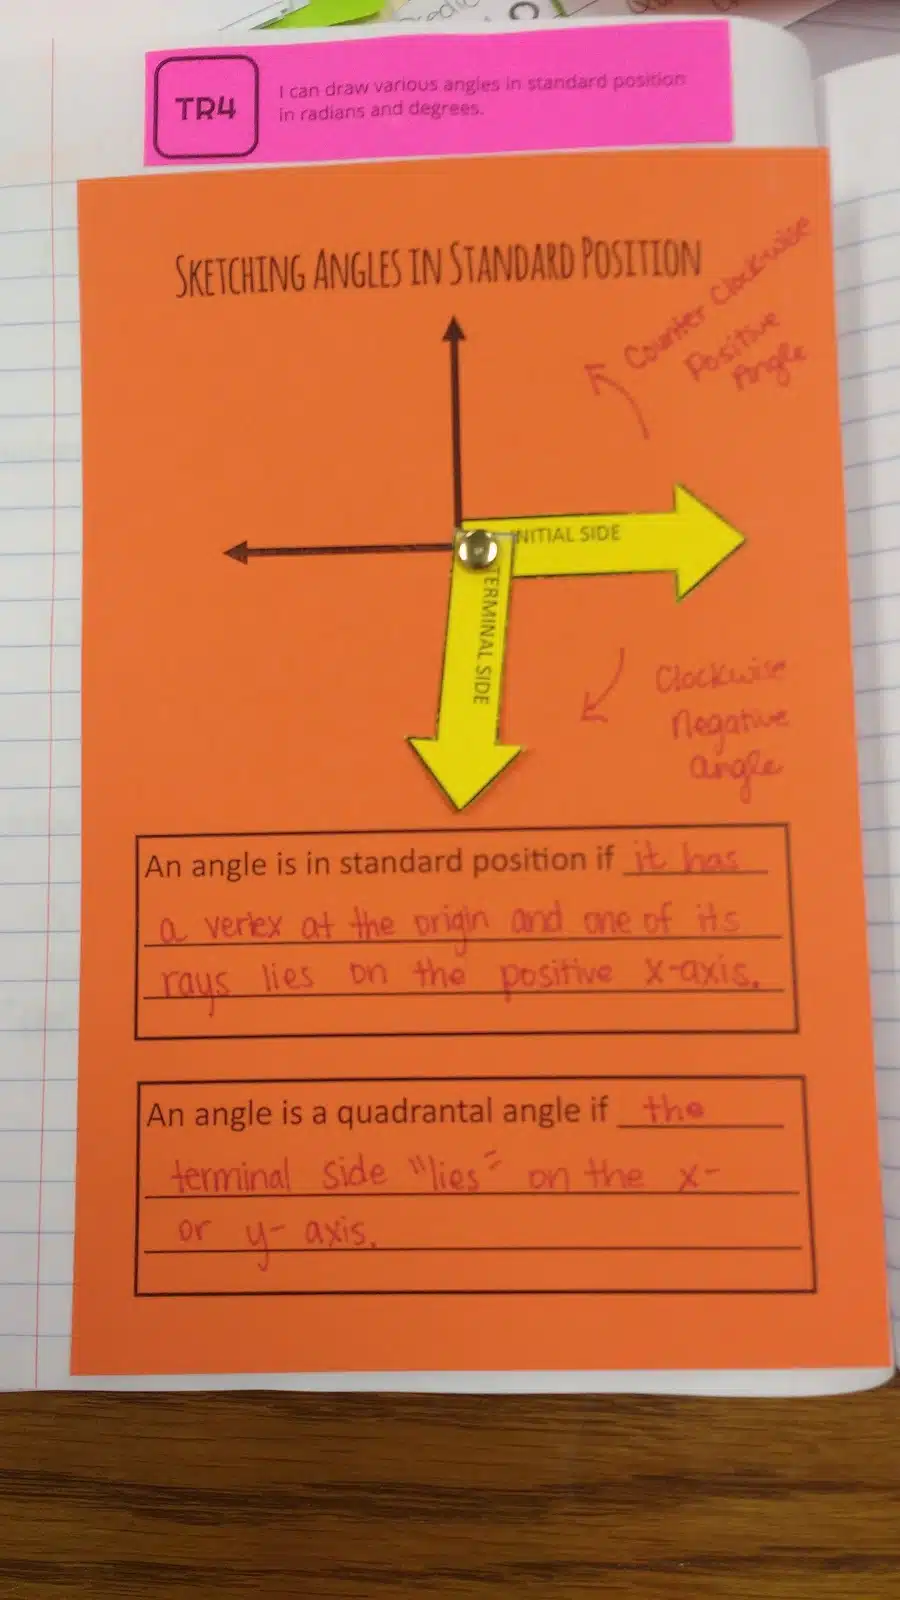 TR4
I can draw various angles in standard position
in radians and degrees.
SKETCHING ANGLES IN STANDARD POSITION
Counter Clockwise
Positive
Angle
INITIAL SIDE
TERMINAL SIDE
Clockwise
Negative
angle
An angle is in standard position if it has
a vertex at the origin and one of its
rays lies on the positive x-axis.
An angle is a quadrantal angle if the
terminal side "lies" on the x-
or y-axis.